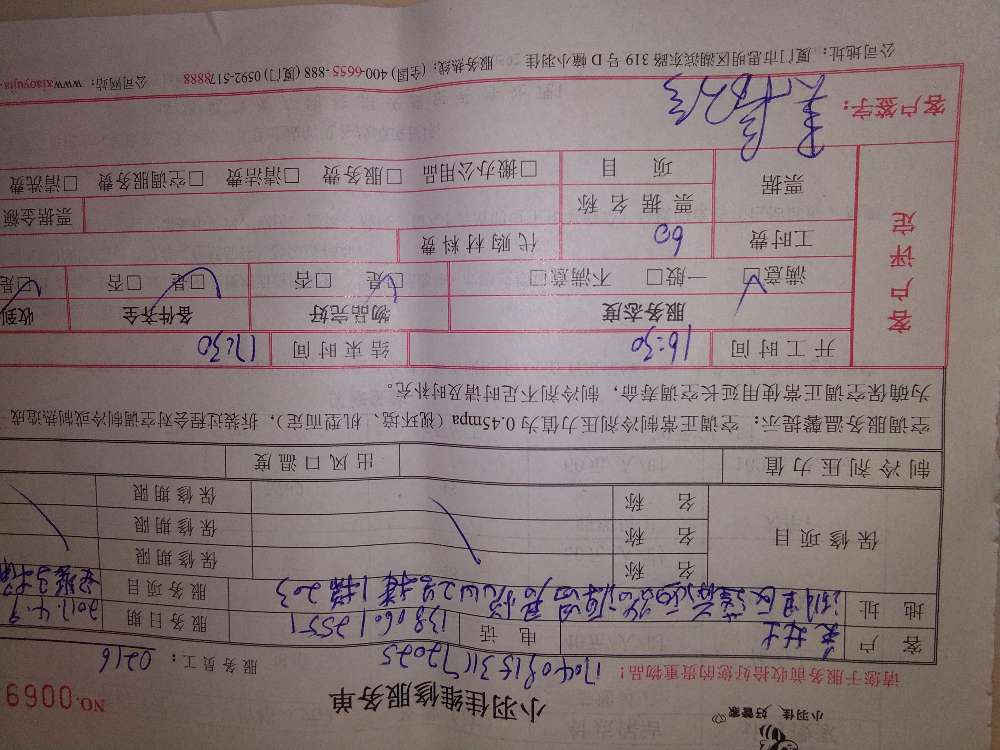 小羽佳、好管家
小羽佳维修服务单
NO.00699
请您于服务前收拾好您的贵重物品！
服务员工：0216
客 户 电 话 13806012551 服务日期 2017.4.9
地 址 服务项目
保修项目 名 称 保修期限
名 称 保修期限
名 称 保修期限
制冷剂压力值 出风口温度
空调服务温馨提示：空调正常制冷剂压力值为0.45mpa（视环境、机型而定），拆装过程会对空调制冷或制热造成
为确保空调正常使用延长空调寿命，制冷剂不足时请及时补充。
开工时间 16:30 结束时间 17:30
客户评定
服务态度 物品完好 备件齐全 收到
满意□ 一般□ 不满意□ □是 □否 □是 □否 □是
工时费 60 代购材料费
票据 票据名称 票据金额
项 目 □搬办公用品 □服务费 □清洁费 □空调服务费 □清洗费
客户签字：
公司地址：厦门市思明区湖滨东路319号D幢小羽佳 服务热线：(全国) 400-6655-888 (厦门) 0592-5178888 公司网站：www.xiaoyujia.